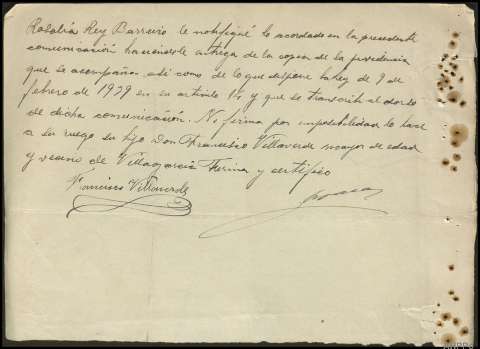 Rosalía Rey Barreiro le notifiqué lo acordado en la precedente
comunicación haciendole entrega de la copia de la providencia
que se acompaña asi como de lo que dispone la Ley de 9 de
febrero de 1939 en su articulo 14, y que se transcribe al dorso
de dicha comunicación. No firma por imposibilidad lo hace
a su ruego su hijo Don Francisco Villaverde mayor de edad
y vecino de Villagarcia Firma y certifico
Francisco Villaverde